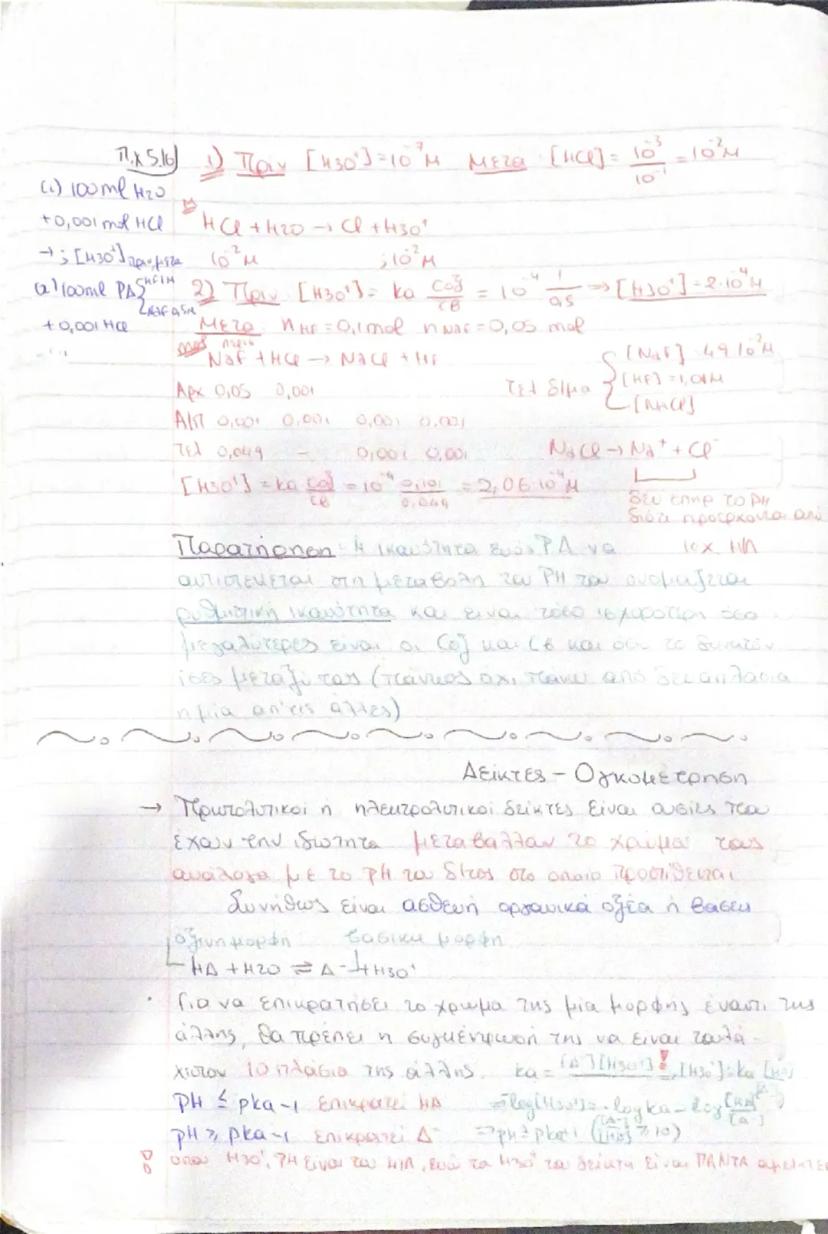 Π.χ 5.16
(i) 100ml H2O
+0,001 mol HCl
→ ; [H3O+] πριν, μετα
(2) 100ml ΡΔ { HF 1M NaF 0,5M
+ 0,001 HCl
1) Πριν [H3O+] = 10^-7 M Μετα [HCl] = 10^-3 / 10^-1 = 10^-2 M
HCl + H2O → Cl + H3O+
10^-2 M ; 10^-2 M
2) Πριν [H3O+] = ka Coξ/CB = 10^-4 1/0,5 ⇒ [H3O+] = 2·10^-4 M
Μετα nHF = 0,1 mol nNaF = 0,05 mol
NaF + HCl → NaCl + HF
Αρχ 0,05 0,001
Α/Π 0,001 0,001 0,001 0,001
Τελ 0,049 - 0,001 0,001
Τελ δ/μα { [NaF] 49 10^-2 M
[HF] = 1,01M
[NaCl]
NaCl → Na+ + Cl-
[H3O+] = ka Coξ/CB = 10^-4 0,101/0,049 = 2,06·10^-4 M
δεν επηρ το PH
διότι προερχονται από
Παρατήρηση: Η ικανότητα ενός ΡΔ να
αντιστέκεται στη μεταβολη του PH του ονομαζεται
ρυθμιστική ικανότητα και ειναι τόσο ισχυροτερη όσο
μεγαλύτερες είναι οι Coξ και CB και όσο το δυνατόν
ίσες μεταξύ τους (πάντως όχι πανω από δεκαπλασια
η μία απ'τις άλλες)
Δείκτες - Ογκομέτρηση
→ Πρωτολυτικοι ή ηλεκτρολυτικοί δείκτες είναι ουσίες που
έχουν την ιδιοτητα μεταβαλλουν το χρώμα τους
ανάλογα με το pH του δ/τος στο οποιο προστίθενται
Συνήθως είναι ασθενή οργανικά οξέα ή βασεις
οξινη μορφη βασικη μορφη
ΗΔ + H2O ⇌ Δ- + H3O+
· Για να επικρατήσει το χρωμα της μία μορφής έναντι της
άλλης, θα πρέπει η συγκέντρωσή της να ειναι τουλά-
χιστον 10πλάσια της άλλης. ka = [Δ-][H3O+]
PH ≤ pka-1 επικρατεί ΗΔ ⇒ -log[H3O+] = -logka - log
pH ≥ pka-1 επικρατεί Δ-
οπου H3O+, PH είναι του ενώ τα H3O+ του δείκτη είναι ΠΑΝΤΑ